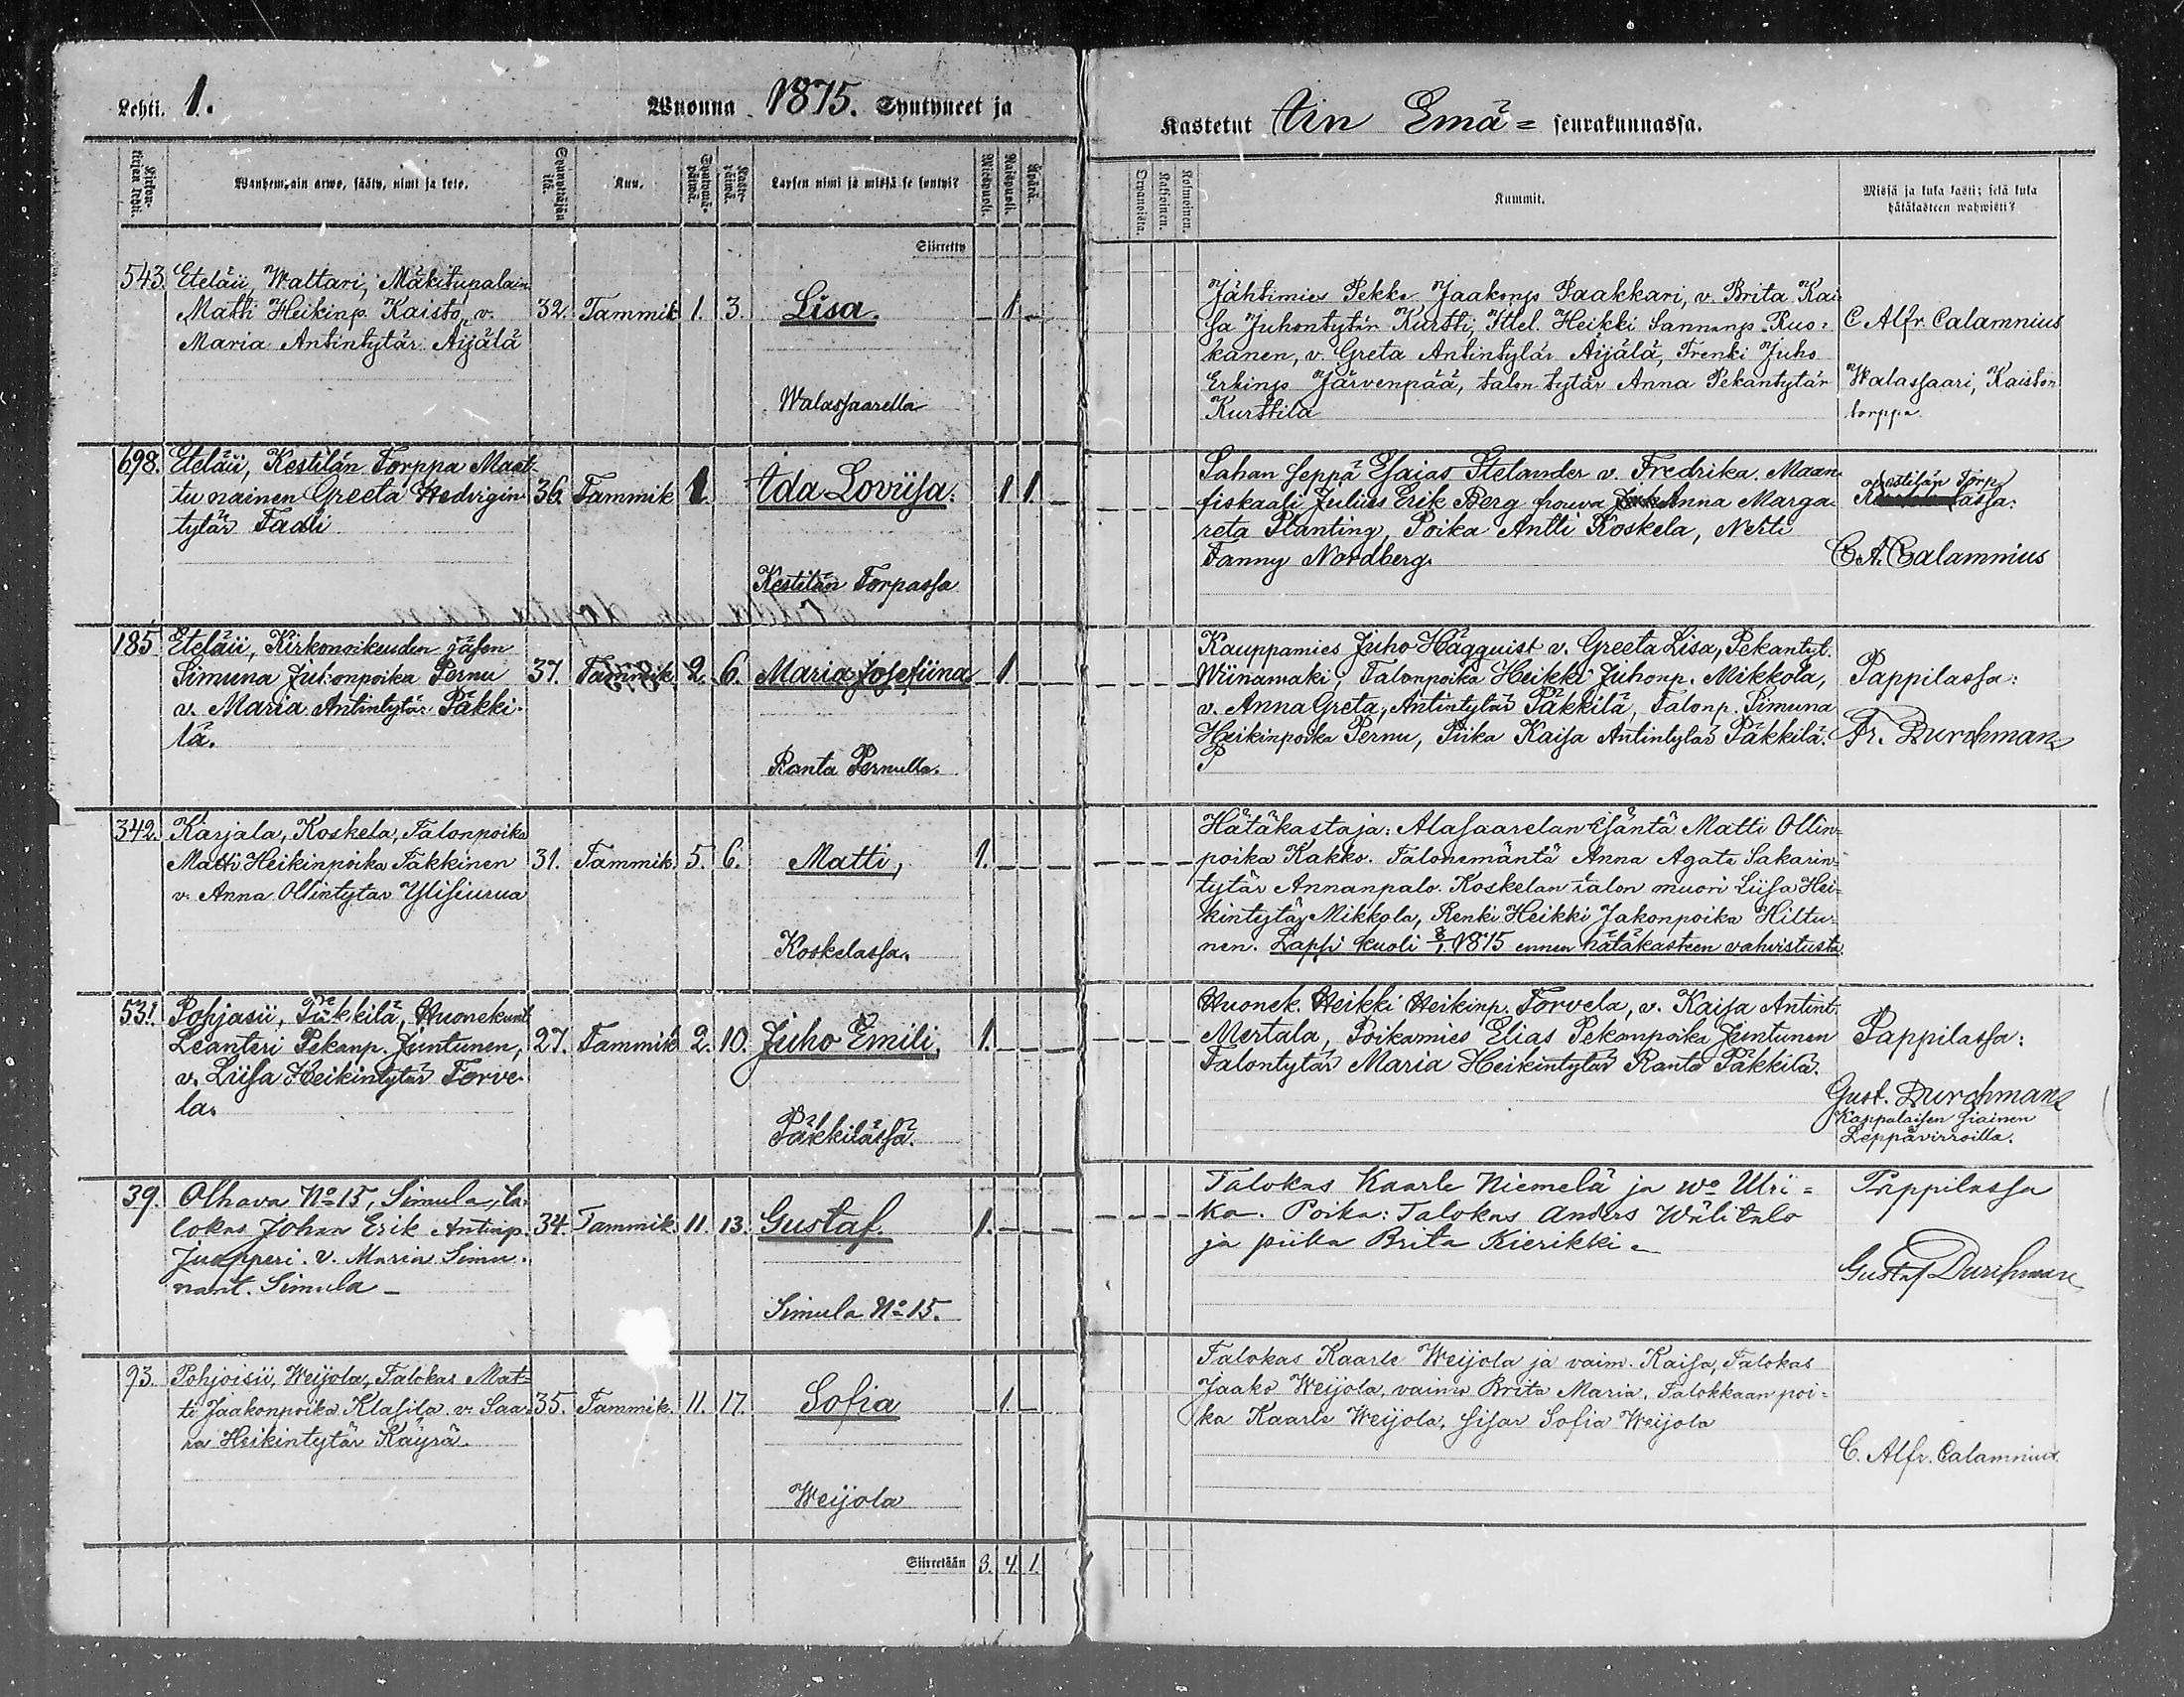 Lehti. 1.
Wuonna 1875. Syntyneet ja
Kastetut Iin Emä= seurakunnassa.
Wanhempain arwo, sääty, nimi ja koto.
Kuu.
Lapsen nimi ja missä se syntyi?
Miehpuoli.
Waipuoli.
Äpärä.
Siirretty
Kaksoinen.
Kolmoinen.
Kummit.
Missä ja kuka kasti; sekä kuka
hätäkasteen wahwisti?
543. Eteläii, Waltari, Mäkitupalain.
Matti Heikinp. Kaisto, v.
Maria Antintytär Äijälä
32. Tammik 1. 3. Lisa. 1
Walassaarella
Jähtimies Pekka Jaakonp Paakkari, v. Brita Kai
sa Juhontytär Kurtti, Ittel. Heikki Sannanp. Ruo=
kanen, v. Greta Antintytär Äijälä, Trenki Juho
Erkinp Järvenpää, talon tytär Anna Pekantytär
Kurttila
C Alfr. Calamnius
Walassaari, Kaiston
torppa.
698. Eteläii, Kestilän Torppa Maat-
tu nainen Greeta Hedvigin
tytär Fadi
36. Tammik 1. Ida Loviisa. 1 1
Kestilän Torpassa
Sahan seppä Esaias Stelander v. Fredrika. Maan
fiskaali Julius Erik Berg frouva Anna Marga
reta Planting, Poika Antti Koskela, Neiti
Fanny Nordberg.
C. A. Calamnius
185 Eteläii, Kirkonoikeuden jäsen
Simuna Juhonpoika Pernu
v. Maria Antintytär Päkki-
lä.
37. Tammik. 2. 6. Maria Josefiina 1
Ranta Pernulla.
Kauppamies Juho Häggquist v. Greeta Lisa, Pekantyt.
Wiinamaki, Talonpoika Heikki Juhonp. Mikkola,
v. Anna Greta, Antintytär Päkkilä, Talonp. Simuna
Heikinpoika Pernu, Piika Kaisa Antintytär Päkkilä.
P
Pappilassa:
Fr. Durchman
342. Karjala, Koskela, Talonpoika
Matti Heikinpoika Takkinen
v. Anna Ollintytar Ylisiurua
31. Tammik. 5. 6. Matti, 1.
Koskelassa.
Hätäkastaja: Alasaarelan Isäntä Matti Ollin=
poika Kakko. Talonemäntä Anna Agata Sakarin=
tytär Annanpalo. Koskelan talon muori Liisa Hei=
kintytär Mikkola, Renki Heikki Jakonpoika Hiltu=
nen. Lapsi kuoli 8/1 1875 ennen hätäkasteen vahvistusta.
531. Pohjasii, Päkkilä, Huonekunt
Leanteri Pekanp. Juntunen,
v. Liisa Heikintytär Torve
la.
27. Tammik 2. 10. Juho Emili, 1.
Päkkilässä.
Huonek. Heikki Heikinp. Torvela, v. Kaisa Antint.
Mertala, Poikamies Elias Pekanpoika Juntunen
Talontytär Maria Heikintytär Ranta Päkkilä.
Pappilassa:
Gust. Durchman
Kappalaisen siainen
Leppävirroilla.
39. Olhava No 15, Simula, Ta-
lokas Johan Erik Antinp.
Juopperi. v. Maria Simu.
nant. Simula -
34. Tammik. 11. 13. Gustaf. 1.
Simula No 15.
Talokas Kaarle Niemelä ja wo Ulri =
ka. Poika: Talokas Anders Wälitalo
ja piika Brita Kierikki.
Pappilassa
Gustaf Durchman
93. Pohjoisii, Weijola, Talokas Mat=
ti Jaakonpoika Klasila v. Saa-
ra Heikintytär Käyrä
35. Tammik. 11. 17. Sofia 1.
Weijola
Talokas Kaarle Weijola ja vaim. Kaisa, Talokas
Jaako Weijola, vaimo Brita Maria, Talokkaan poi=
ka Kaarle Weijola, sisar Sofia Weijola
C. Alfr. Calamnius.
Siirretään 3. 4. 1.